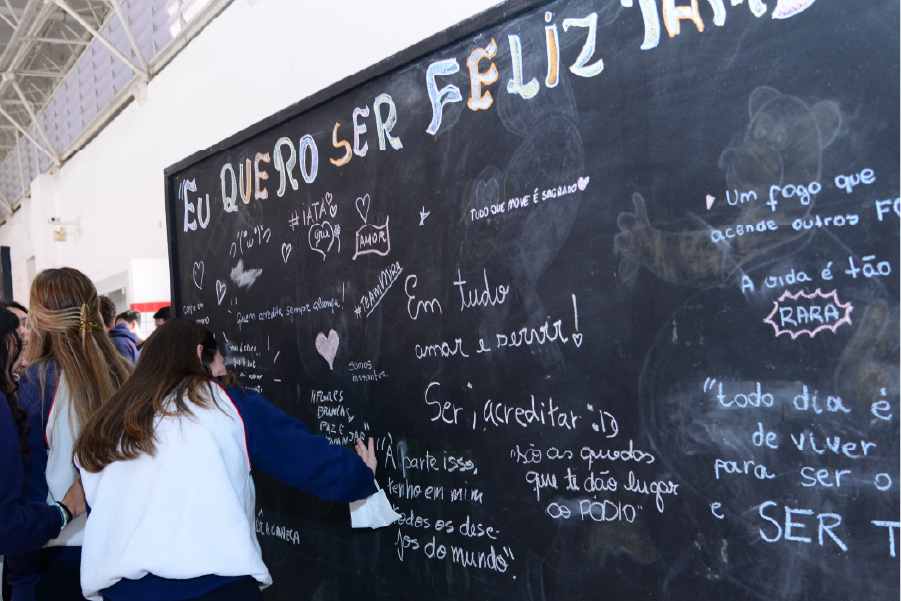 "EU QUERO SER FELIZ
#IATA
AMOR
#TEAMMIRA
TUDO QUE MOVE É SAGRADO
Um fogo que
acende outros
A vida é tão
RARA
Quem acredita sempre alcança!
Em tudo
amar e servir!
somos
instantes.
Ser; acreditar :)
"FLORES
BRANCAS,
PAZ E
"À parte isso,
tenho em mim
todos os dese-
jos do mundo".
"São as quedas
que te dão lugar
ao PÓDIO"
"todo dia é
de viver
para ser o
e SER T